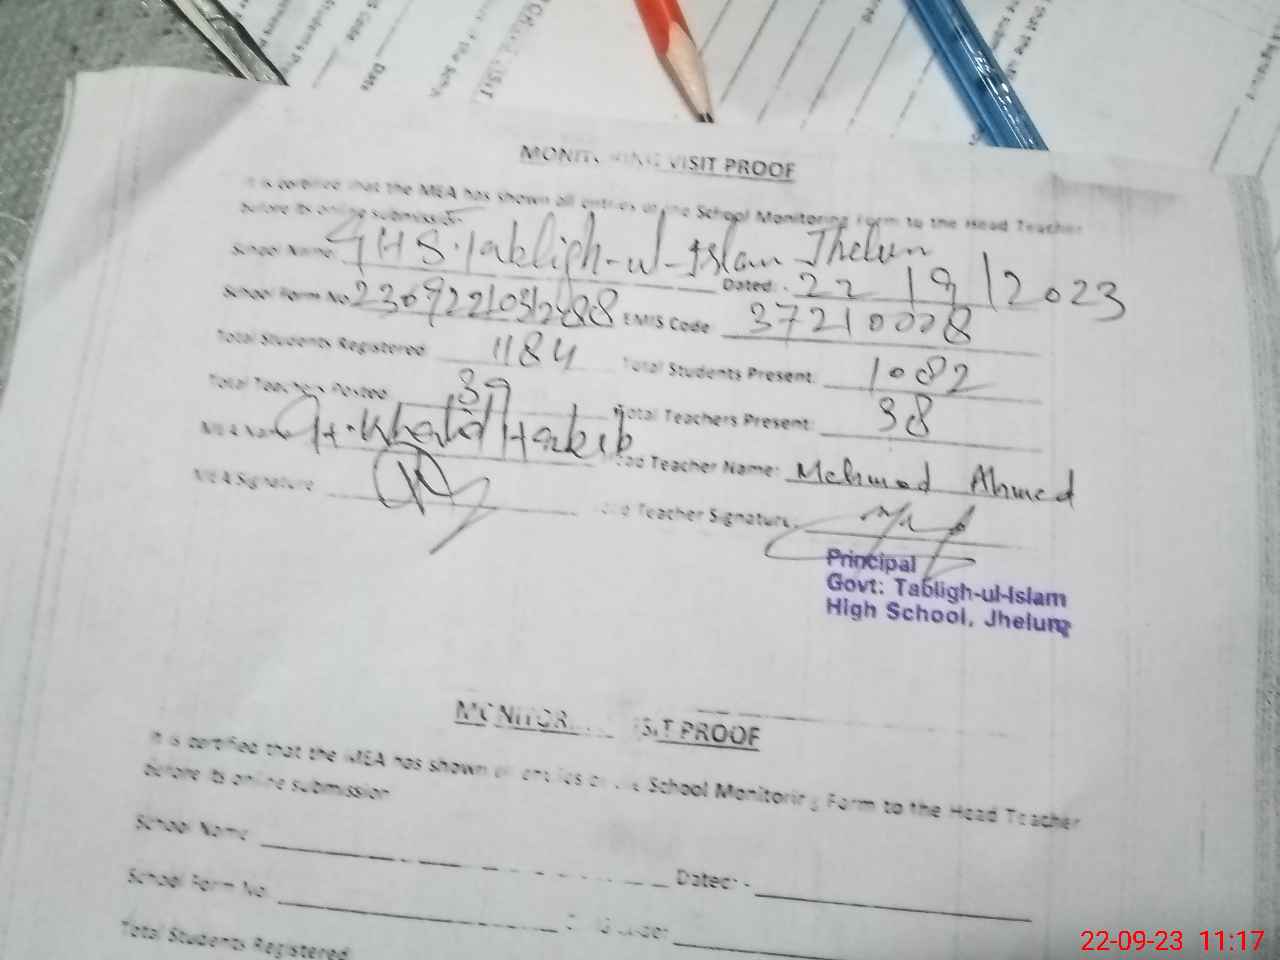 MONITORING VISIT PROOF
It is certified that the MEA has shown all entries of the School Monitoring Form to the Head Teacher
before its online submission
School Name GHS Tabligh-ul-Islam Jhelum
Dated: 22/9/2023
School Form No. EMIS Code 37210008
Total Students Registered 1184 Total Students Present: 1082
Total Teachers Posted 39 Total Teachers Present: 38
MEA Name Khalid Habib Head Teacher Name: Mehmod Ahmed
MEA Signature Head Teacher Signature
Principal
Govt: Tabligh-ul-Islam
High School, Jhelum
MONITORING VISIT PROOF
It is certified that the MEA has shown all entries of the School Monitoring Form to the Head Teacher
before its online submission
School Name Dated:
School Form No.
Total Students Registered
22-09-23 11:17